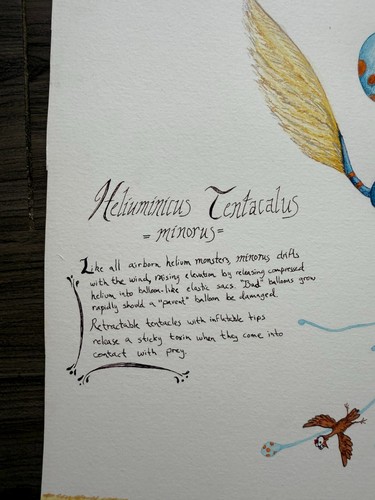 Heliuminicus Tentacalus
= minorus =
Like all airborn helium monsters, minorus drifts
with the wind, raising elevation by releasing compressed
helium into balloon-like elastic sacs. "Bud" balloons grow
rapidly should a "parent" balloon be damaged.
Retractable tentacles with inflatable tips
release a sticky toxin when they come into
contact with prey.